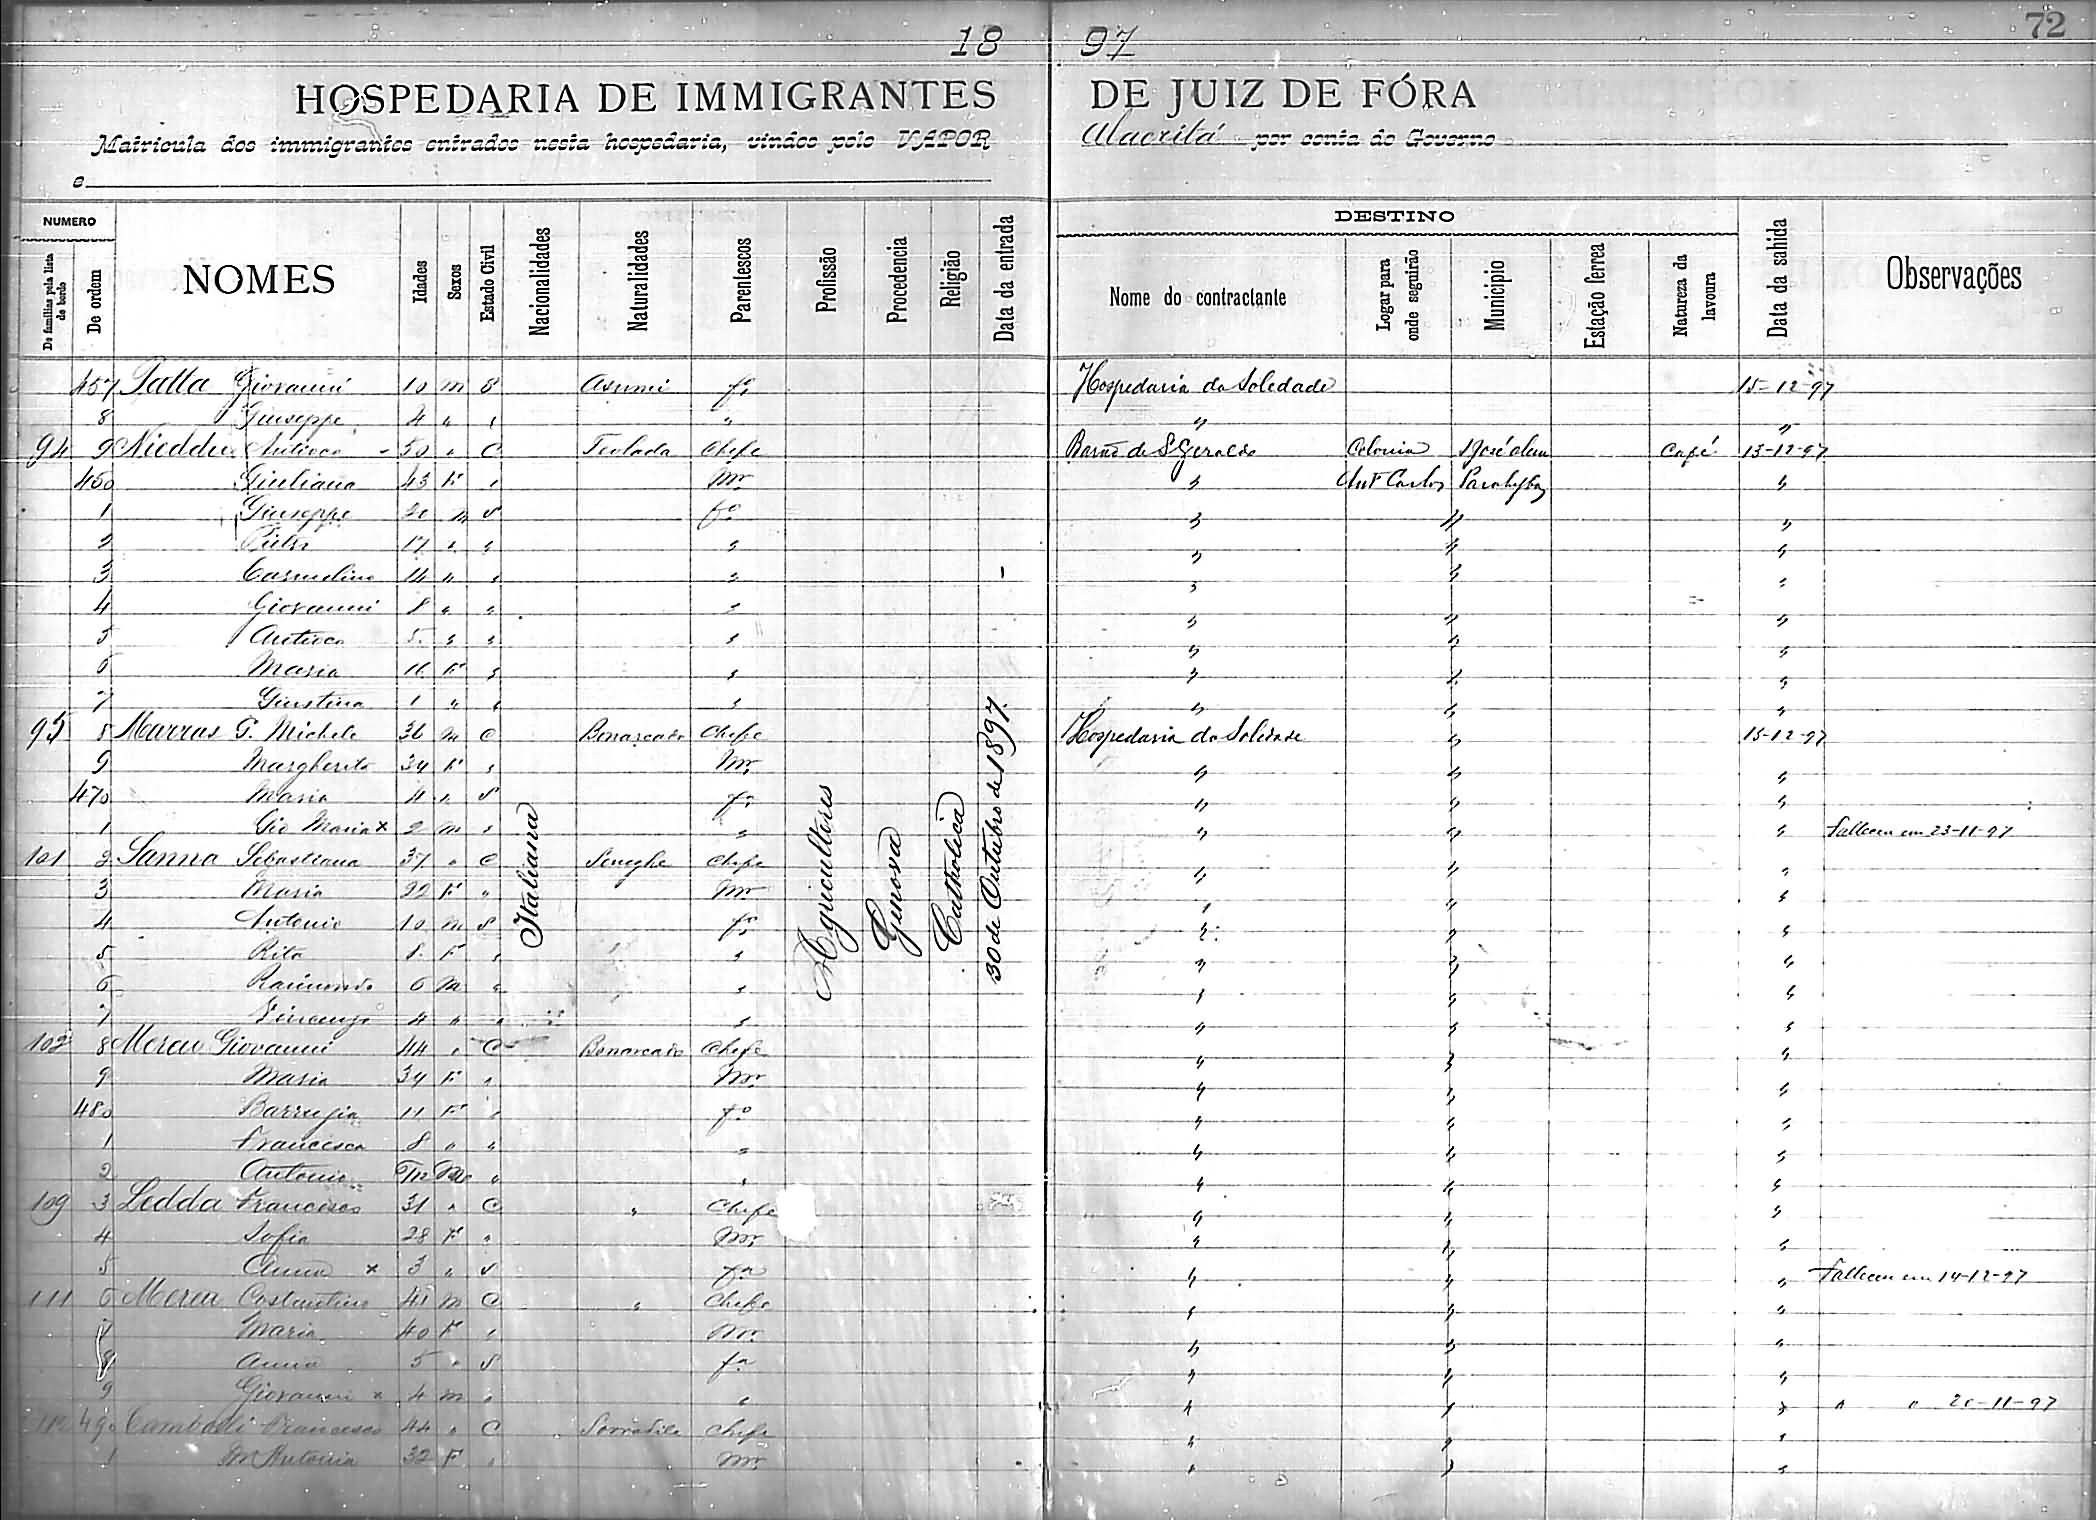 72
18 97
HOSPEDARIA DE IMMIGRANTES DE JUIZ DE FÓRA
Matricula dos immigrantes entrados nesta hospedaria, vindos pelo VAPOR Alacritá por conta do Governo
e
NUMERO DESTINO
De familias pela lista de bordo De ordem NOMES Idades Sexos Estado Civil Nacionalidades Naturalidades Parentescos Profissão Procedencia Religião Data da entrada Nome do contractante Logar para onde seguirão Municipio Estação ferrea Natureza da lavoura Data da sahida Observações
457 Patta Giovanni 10 m S Asuni fo Hospedaria da Soledade 15-12-97
8 Giuseppe 4 " " " " "
94 9 Nieddu Antioco 50 " C Teulada Chefe Barão de S Geraldo Colonia S José d'alem Café 13-12-97
450 Giuliana 43 F " Mr " Ant Carlos Parahyba "
1 Giuseppe 20 m S fo " " "
2 Pietro 17 " " " " " "
3 Carmelino 14 " " " " " "
4 Giovanni 8 " " " " " "
5 Antioco 5 " " " " " "
6 Maria 11 F " " " " "
7 Giustina 1 " " " " " "
95 8 Marras G. Michele 36 m C Bonarcado Chefe Hospedaria da Soledade " 15-12-97
9 Margherita 34 F " Mr " " "
470 Maria 4 " S fa " " "
1 Gio Maria x 2 m " " " " " Falleceu em 23-11-97
101 2 Sanna Sebastiana 37 " C Seneghe Chefe " " "
3 Maria 32 F " Mr " " "
4 Antonio 10 m S fo " " "
5 Rita 8 F " " " " "
6 Raimondo 6 m " " " " "
7 4 " " " " " "
102 8 Mereu Giovanni 44 " C Bonarcado Chefe " " "
9 Maria 34 F " Mr " " "
480 11 F " fa " " "
1 Francesca 8 " " " " " "
2 Antonio m " " " " "
109 3 Ledda Francesco 31 " C " Chefe " " "
4 Sofia 28 F " Mr " " "
5 Anna x 3 " S fa " " " Falleceu em 14-12-97
111 6 Merea Costantino 41 m C " Chefe " " "
7 Maria 40 F " Mr " " "
8 Anna 5 " S fa " " "
9 Giovanni x 4 m " " " " " " " 20-11-97
490 Francesco 44 " C Sorradile Chefe " " "
1 M Antonia 32 F " Mr " " "
Italiana
Agricultores
Genova
Catholica
30 de Outubro de 1897